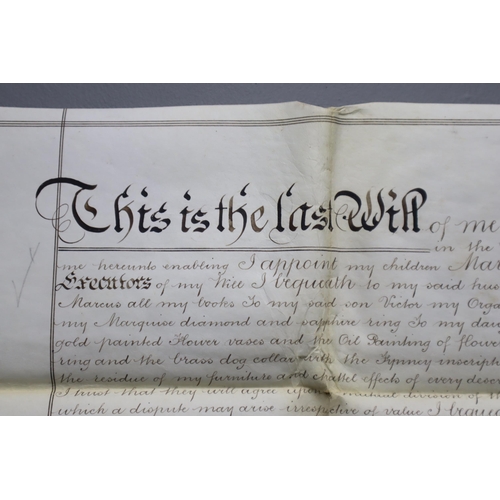 This is the last Will of me
in the
me hereunto enabling I appoint my children Mar
Executors of my Will I bequeath to my said hus
Marcus all my books To my said son Victor my Orga
my Marquise diamond and sapphire ring To my dau
gold painted Flower vases and the Oil Painting of flower
ring and the brass dog collar with the inscripti
the residue of my furniture and chattel effects of every desc
I trust that they will agree upon mutual division of th
which a dispute may arise irrespective of value I bequea